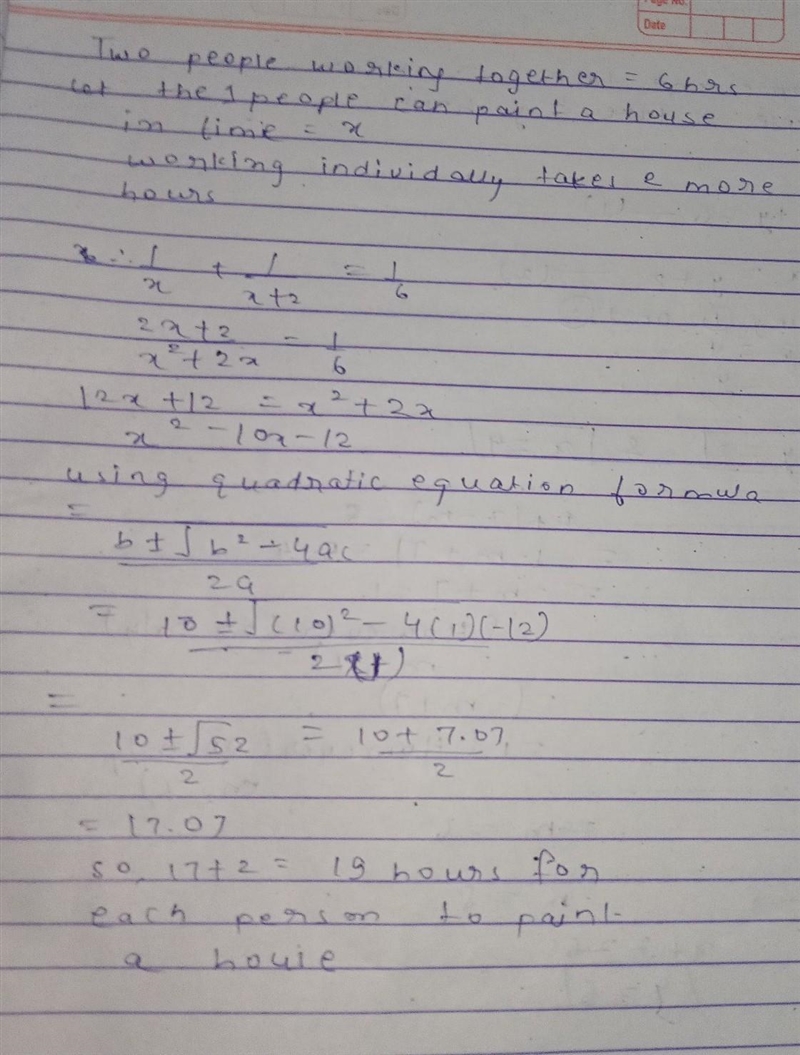 Page No.
Date
Two people working together = 6 hrs
Let the 1 people can paint a house
in time = x
working individally takes e more
hours
∴ 1/x + 1/x+2 = 1/6
2x+2/x²+2x - 1/6
12x + 12 = x² + 2x
x² - 10x - 12
using quadratic equation formula
=
b ± √b² - 4ac / 2a
= 10 ± √(10)² - 4(1)(-12) / 2(1)
=
10 ± √52 / 2 = 10 + 7.07 / 2
= 17.07
so, 17+2 = 19 hours for
each person to paint
a house